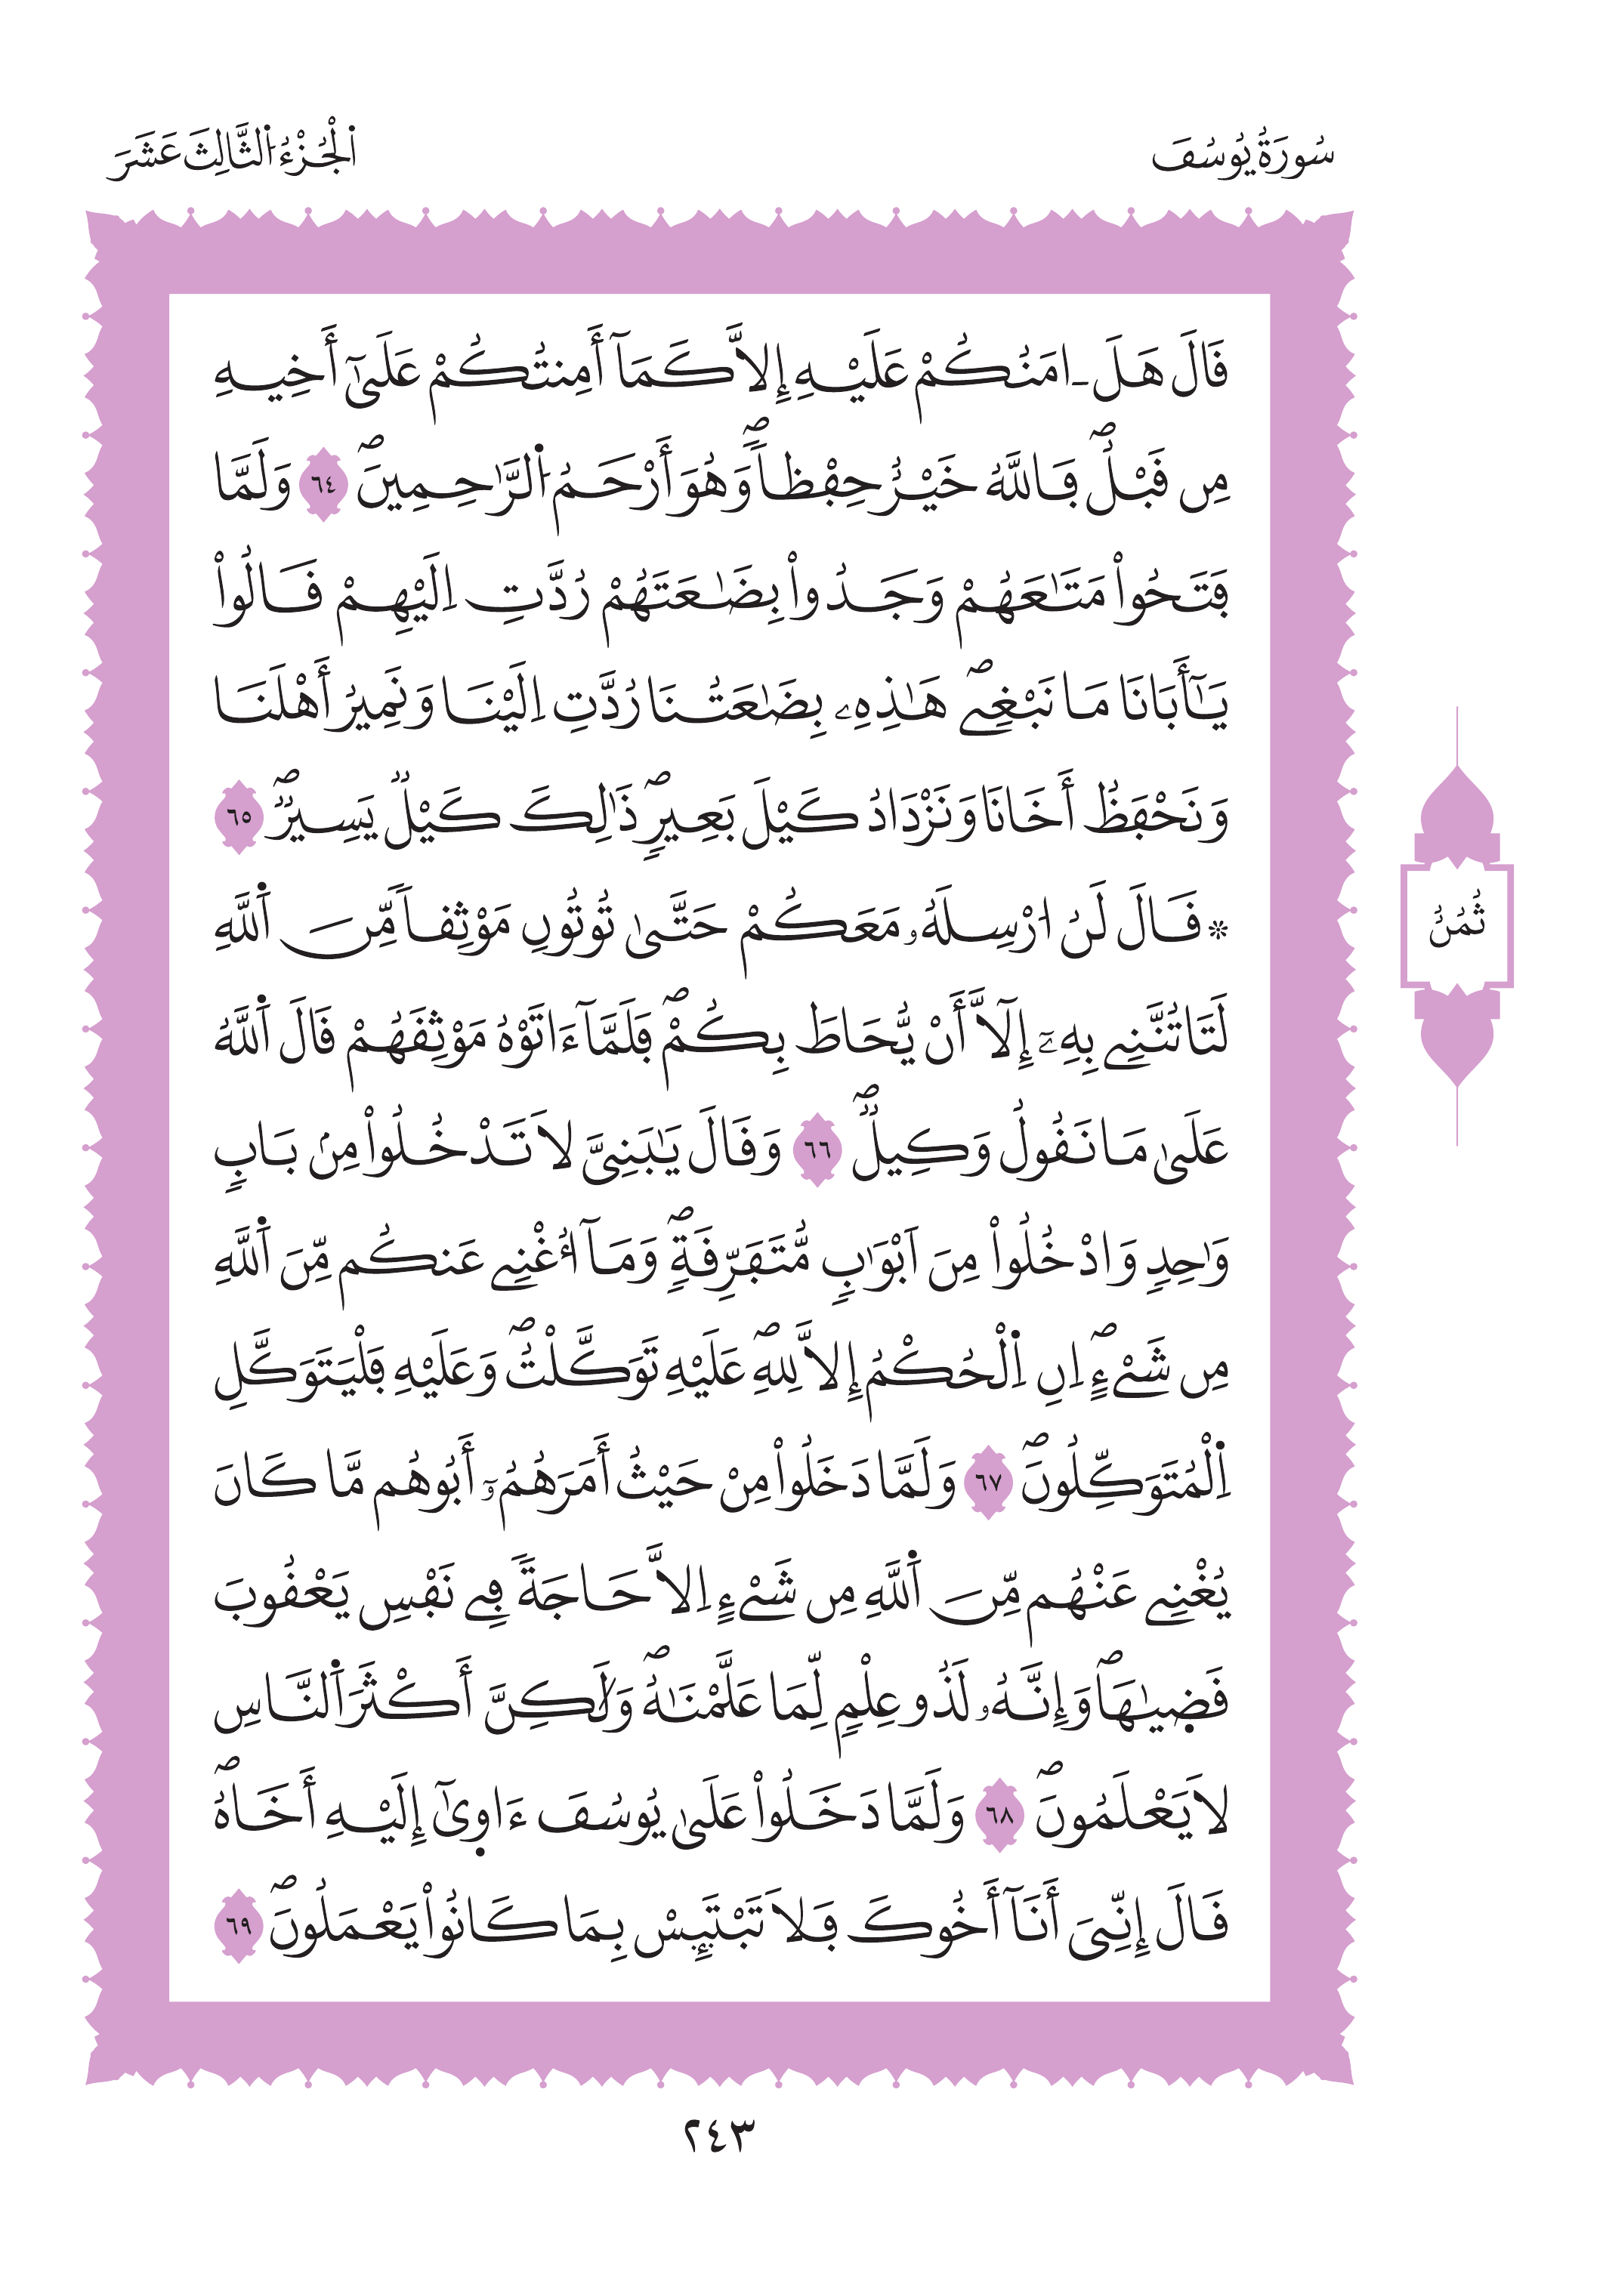 سُورَةُ يُوسُفَ
اَلْجُزْءُ اَلثَّالِثَ عَشَرَ
قَالَ هَلَ ـ امَنُكُمْ عَلَيْهِ إِلاَّ كَمَآ أَمِنتُكُمْ عَلَىٰٓ أَخِيهِ
مِن قَبْلُۖ فَاللَّهُ خَيْرٌ حِفْظاًۖ وَهُوَ أَرْحَمُ اُلرَّٰحِمِينَۖ ٦٤ وَلَمَّا
فَتَحُواْ مَتَٰعَهُمْ وَجَدُواْ بِضَٰعَتَهُمْ رُدَّتِ اِلَيْهِمْ قَالُواْ
يَٰٓأَبَانَا مَا نَبْغِےۖ هَٰذِهِۦ بِضَٰعَتُنَا رُدَّتِ اِلَيْنَا وَنَمِيرُ أَهْلَنَا
وَنَحْفَظُ أَخَانَا وَنَزْدَادُ كَيْلَ بَعِيرٍۖ ذَٰلِكَ كَيْلٌ يَسِيرٌۖ ٦٥
* قَالَ لَنُ ا۟رْسِلَهُۥ مَعَكُمْ حَتَّىٰ تُوتُونِ مَوْثِقاً مِّنَ اَ۬للَّهِ
لَتَاتُنَّنِے بِهِۦٓ إِلَّآ أَنْ يُّحَاطَ بِكُمْۖ فَلَمَّآ ءَاتَوْهُ مَوْثِقَهُمْ قَالَ اَ۬للَّهُ
عَلَىٰ مَا نَقُولُ وَكِيلٌۖ ٦٦ وَقَالَ يَٰبَنِيَّ لاَ تَدْخُلُواْ مِنۢ بَابٍ
وَٰحِدٍ وَادْخُلُواْ مِنَ اَبْوَٰبٍ مُّتَفَرِّقَةٍۖ وَمَآ أُغْنِے عَنكُم مِّنَ اَ۬للَّهِ
مِن شَےْءٍۖ اِنِ اِ۬لْحُكْمُ إِلاَّ لِلهِۖ عَلَيْهِ تَوَكَّلْتُۖ وَعَلَيْهِ فَلْيَتَوَكَّلِ
اِ۬لْمُتَوَكِّلُونَۖ ٦٧ وَلَمَّا دَخَلُواْ مِنْ حَيْثُ أَمَرَهُمُۥٓ أَبُوهُم مَّا كَانَ
يُغْنِے عَنْهُم مِّنَ اَ۬للَّهِ مِن شَےْءٍ اِلاَّ حَاجَةً فِے نَفْسِ يَعْقُوبَ
قَضِيٰهَاۖ وَإِنَّهُۥ لَذُو عِلْمٍ لِّمَا عَلَّمْنَٰهُۖ وَلَٰكِنَّ أَكْثَرَ اَ۬لنَّاسِ
لاَ يَعْلَمُونَۖ ٦٨ وَلَمَّا دَخَلُواْ عَلَىٰ يُوسُفَ ءَاوِيٰٓ إِلَيْهِ أَخَاهُۖ
قَالَ إِنِّيَ أَنَآ أَخُوكَ فَلاَ تَبْتَئِسْ بِمَا كَانُواْ يَعْمَلُونَۖ ٦٩
ثُمُنُ
٢٤٣